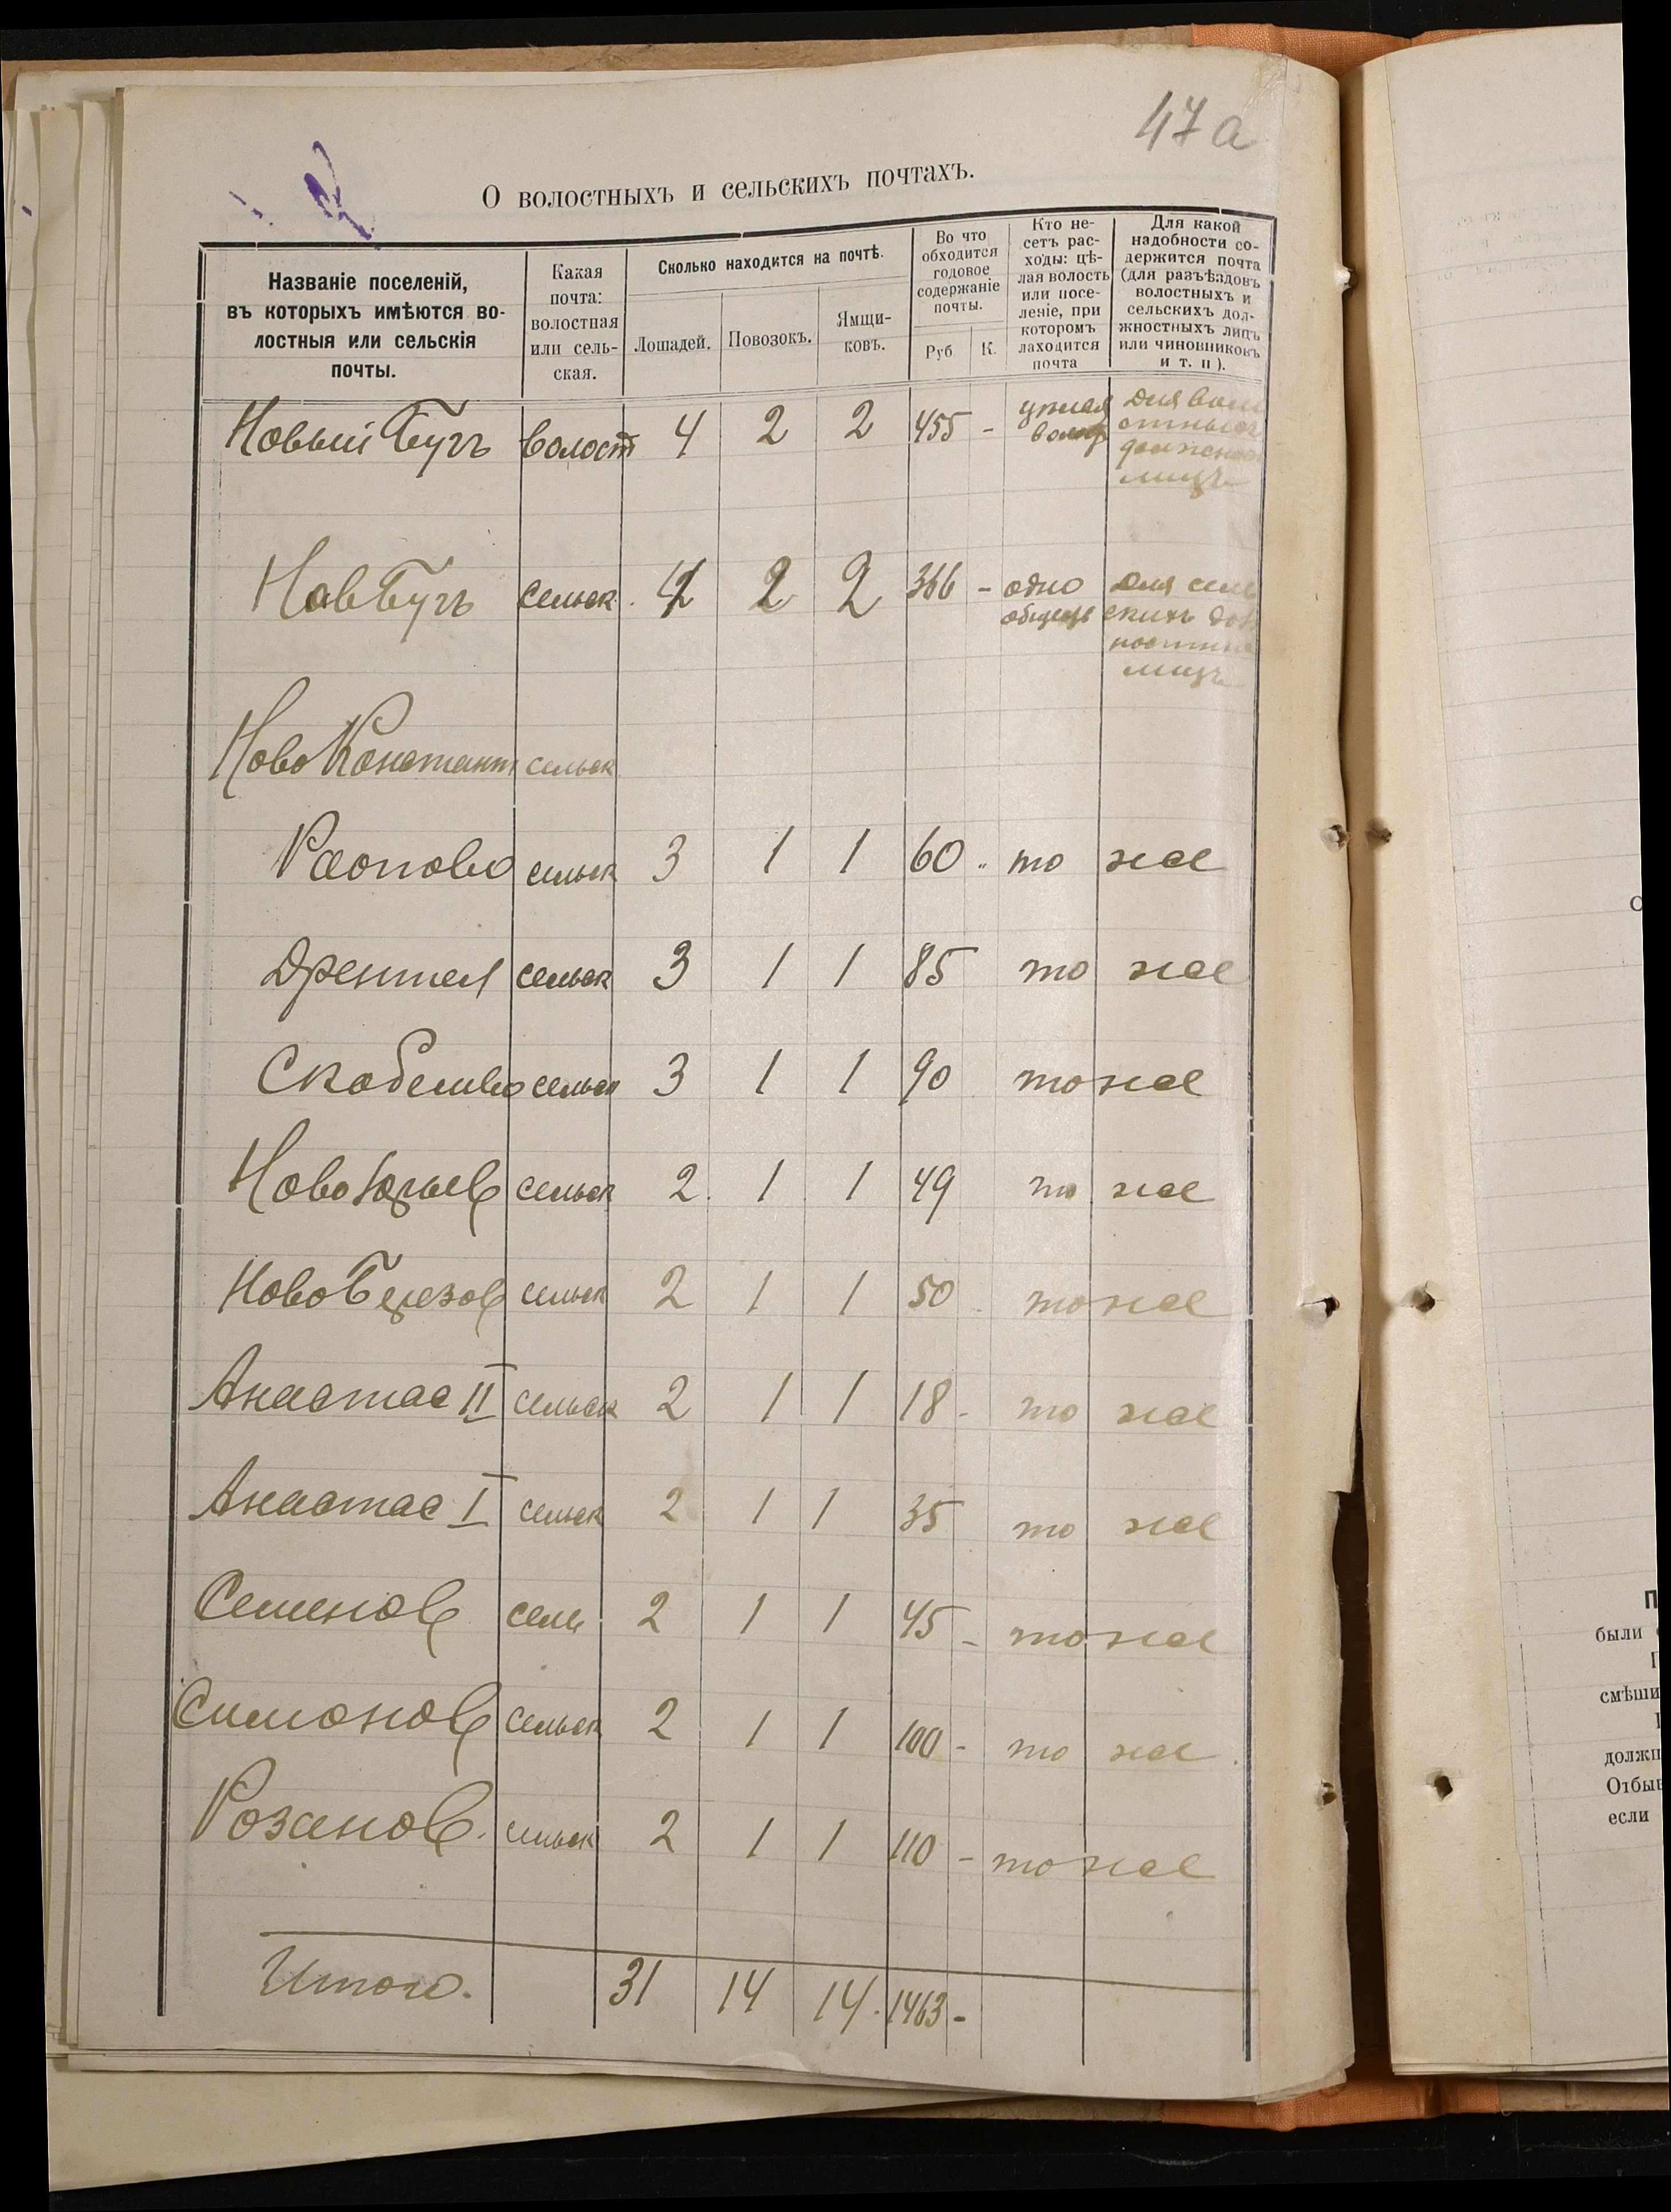 47а
О волостныхъ и сельскихъ почтахъ.
Названіе поселеній,
въ которыхъ имѣются во-
лостныя или сельскія
почты.
Какая
почта:
волостная
или сель-
ская.
Сколько находится на почтѣ.
Лошадей.
Повозокъ.
Ямщи-
ковъ.
Во что
обходится
годовое
содержаніе
почты.
Руб
К.
Кто не-
сетъ рас-
ходы: цѣ-
лая волость
или посе-
леніе, при
которомъ
находится
почта
Для какой
надобности со-
держится почта
(для разъѣздовъ
волостныхъ и
сельскихъ дол-
жностныхъ лицъ
или чиновниковъ
и т. п).
Новый Бугъ волост 4 2 2 455 - цѣлая для вол
волос
лицъ
Нов Бугъ сельск. 2 2 366 - одно для сель
общест скихъ
лицъ
Ново Константи сельск
Раопово сельск 3 1 1 60 то же
Дрентел сельск 3 1 1 85 то же
Скобелево сельск 3 1 1 90 то же
Ново Юрьев сельск 2 1 1 49 то же
Ново Березов сельск 2 1 1 50 то же
Анастас II сельск 2 1 1 18 - то же
Анастас I сельск 2 1 1 35 то же
Семенов сель 2 1 1 45 - то же
Симонов сельск 2 1 1 100 - то же
Розанов. сельск 2 1 1 110 - то же
Итого. 31 14 14. 1463 -
были
смѣши
должн
Отбыв
если